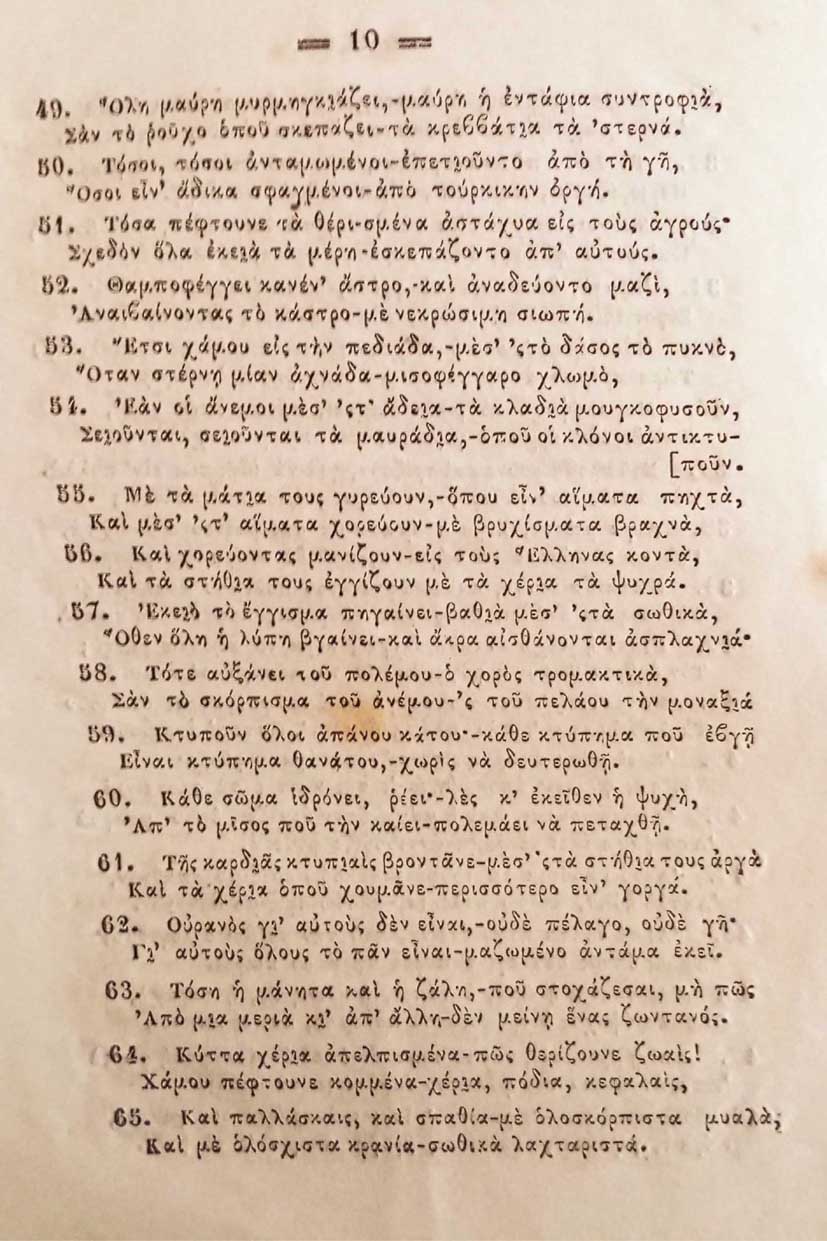 = 10 =
49. Ὅλη μαύρη μυρμηγκιάζει,-μαύρη ἡ ἐντάφια συντροφιὰ,
Σὰν τὸ ῥοῦχο ὁποῦ σκεπάζει-τὰ κρεββάτια τὰ ’στερνά.
50. Τόσοι, τόσοι ἀνταμωμένοι-ἐπετιοῦντο ἀπὸ τὴ γῆ,
Ὅσοι εἶν’ ἄδικα σφαγμένοι-ἀπὸ τούρκικην ὀργή.
51. Τόσα πέφτουνε τὰ θέρι-σμένα ἀστάχυα εἰς τοὺς ἀγρούς·
Σχεδὸν ὅλα ἐκειὰ τὰ μέρη-ἐσκεπάζοντο ἀπ’ αὐτούς.
52. Θαμποφέγγει κανέν’ ἄστρο,-καὶ ἀναδεύοντο μαζὶ,
Ἀναιβαίνοντας τὸ κάστρο-μὲ νεκρώσιμη σιωπή.
53. Ἔτσι χάμου εἰς τὴν πεδιάδα,-μὲσ’ ’ςτὸ δάσος τὸ πυκνὸ,
Ὅταν στέρνῃ μίαν ἀχνάδα-μισοφέγγαρο χλωμὸ,
54. Ἐὰν οἱ ἄνεμοι μὲσ’ ’ςτ’ ἄδεια-τὰ κλαδιὰ μουγκοφυσοῦν,
Σειοῦνται, σειοῦνται τὰ μαυράδια,-ὁποῦ οἱ κλόνοι ἀντικτυ-
[ποῦν.
55. Μὲ τὰ μάτια τους γυρεύουν,-ὅπου εἶν’ αἵματα πηχτὰ,
Καὶ μὲσ’ ’ςτ’ αἵματα χορεύουν-μὲ βρυχίσματα βραχνὰ,
56. Καὶ χορεύοντας μανίζουν-εἰς τοὺς Ἕλληνας κοντὰ,
Καὶ τὰ στήθια τους ἐγγίζουν μὲ τὰ χέρια τὰ ψυχρά.
57. Ἐκειὸ τὸ ἔγγισμα πηγαίνει-βαθιὰ μὲσ’ ’ςτὰ σωθικὰ,
Ὅθεν ὅλη ἡ λύπη βγαίνει-καὶ ἄκρα αἰσθάνονται ἀσπλαχνιά·
58. Τότε αὐξάνει τοῦ πολέμου-ὁ χορὸς τρομακτικὰ,
Σὰν τὸ σκόρπισμα τοῦ ἀνέμου-’ς τοῦ πελάου τὴν μοναξιά
59. Κτυποῦν ὅλοι ἀπάνου κάτου·-κάθε κτύπημα ποῦ ἐβγῇ
Εἶναι κτύπημα θανάτου,-χωρὶς νὰ δευτερωθῇ.
60. Κάθε σῶμα ἱδρόνει, ῥέει·-λὲς κ’ ἐκεῖθεν ἡ ψυχὴ,
Ἀπ’ τὸ μῖσος ποῦ τὴν καίει-πολεμάει νὰ πεταχθῇ.
61. Τῆς καρδιᾶς κτυπιαὶς βροντᾶνε-μὲσ’ ’ςτὰ στήθια τους ἀργὰ
Καὶ τὰ χέρια ὁποῦ χουμᾶνε-περισσότερο εἶν’ γοργά.
62. Οὐρανὸς γι’ αὐτοὺς δὲν εἶναι,-οὐδὲ πέλαγο, οὐδὲ γῆ·
Γι’ αὐτοὺς ὅλους τὸ πᾶν εἶναι-μαζωμένο ἀντάμα ἐκεῖ.
63. Τόση ἡ μάνητα καὶ ἡ ζάλη,-ποῦ στοχάζεσαι, μὴ πῶς
Ἀπὸ μια μεριὰ κι’ ἀπ’ ἄλλη-δὲν μείνῃ ἕνας ζωντανός.
64. Κύττα χέρια ἀπελπισμένα-πῶς θερίζουνε ζωαὶς!
Χάμου πέφτουνε κομμένα-χέρια, πόδια, κεφαλαὶς,
65. Καὶ παλλάσκαις, καὶ σπαθία-μὲ ὁλοσκόρπιστα μυαλὰ,
Καὶ μὲ ὁλόσχιστα κρανία-σωθικὰ λαχταριστά.